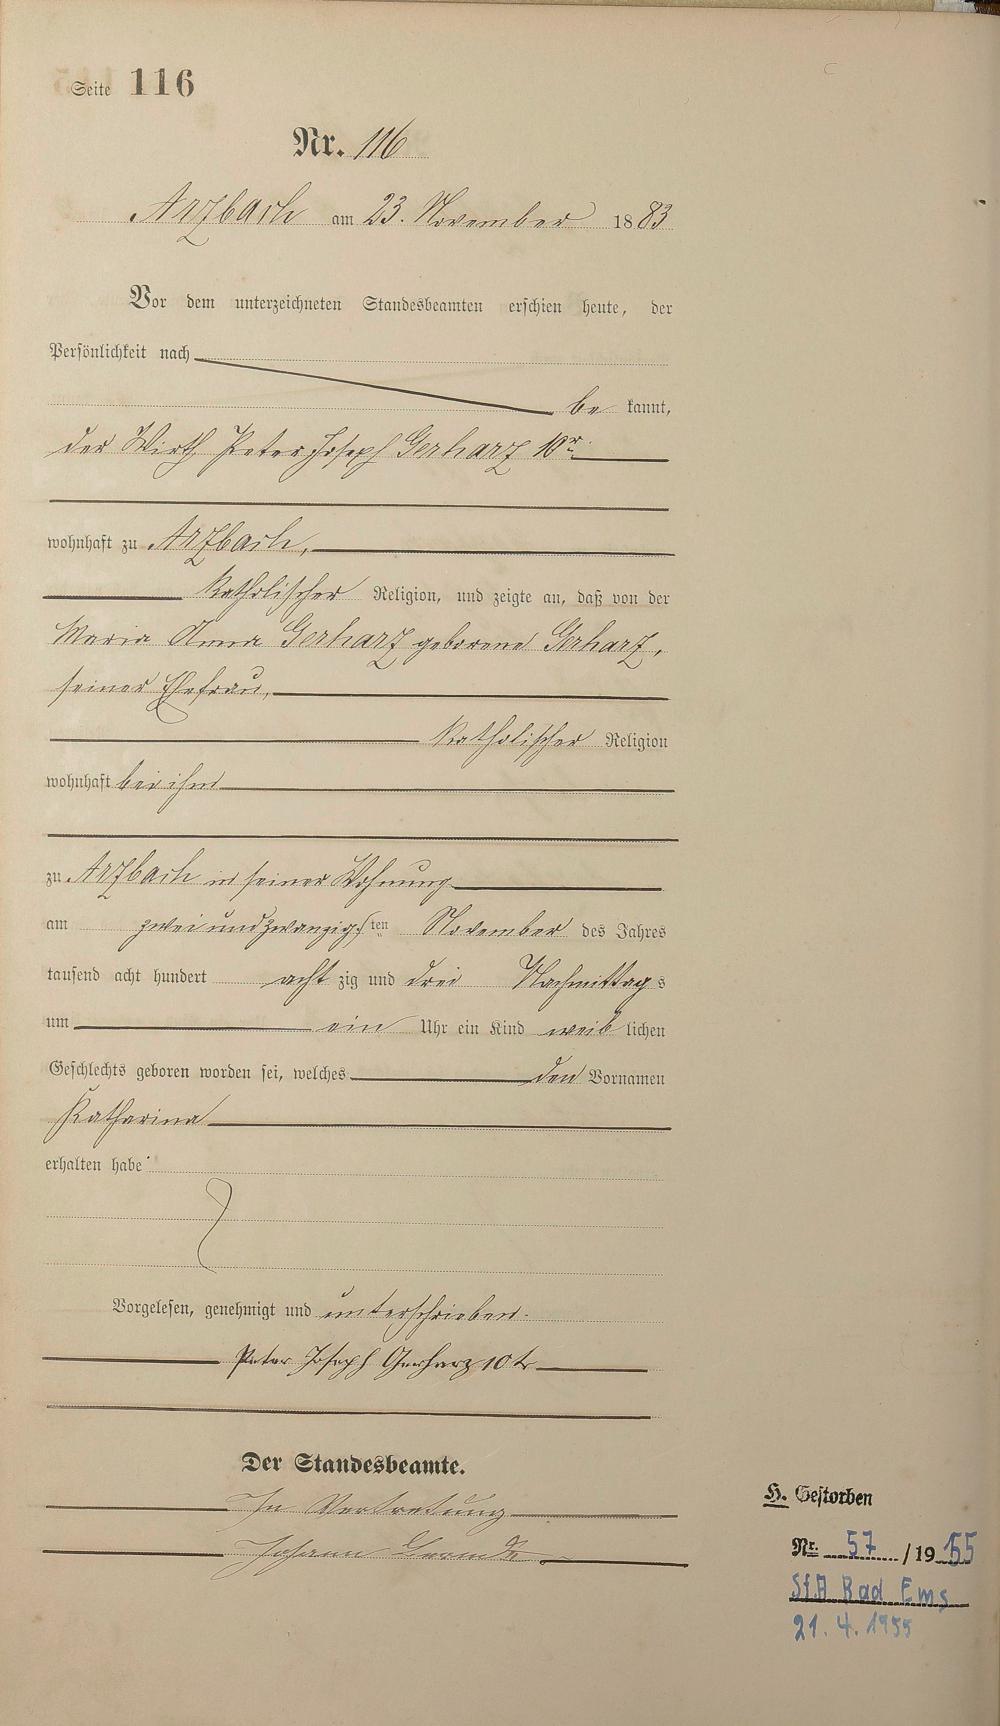 Seite 116
Nr. 116
Arzbach am 23. November 1883
Vor dem unterzeichneten Standesbeamten erschien heute, der
Persönlichkeit nach
be kannt,
der Wirth Peter Joseph Gerharz 10r.
wohnhaft zu Arzbach,
katholischer Religion, und zeigte an, daß von der
Maria Anna Gerharz geborene Gerharz,
seiner Ehefrau,
katholischer Religion
wohnhaft bei ihm
zu Arzbach in seiner Wohnung
am zwei und zwanzigsten November des Jahres
tausend acht hundert acht zig und drei Nachmittags
um ein Uhr ein Kind weib lichen
Geschlechts geboren worden sei, welches den Vornamen
Katharina
erhalten habe
Vorgelesen, genehmigt und unterschrieben.
Peter Joseph Gerharz 10 tr
Der Standesbeamte.
In Vertretung
Johann
H. Gestorben
Nr. 57 /1955
StA Bad Ems
21. 4. 1955